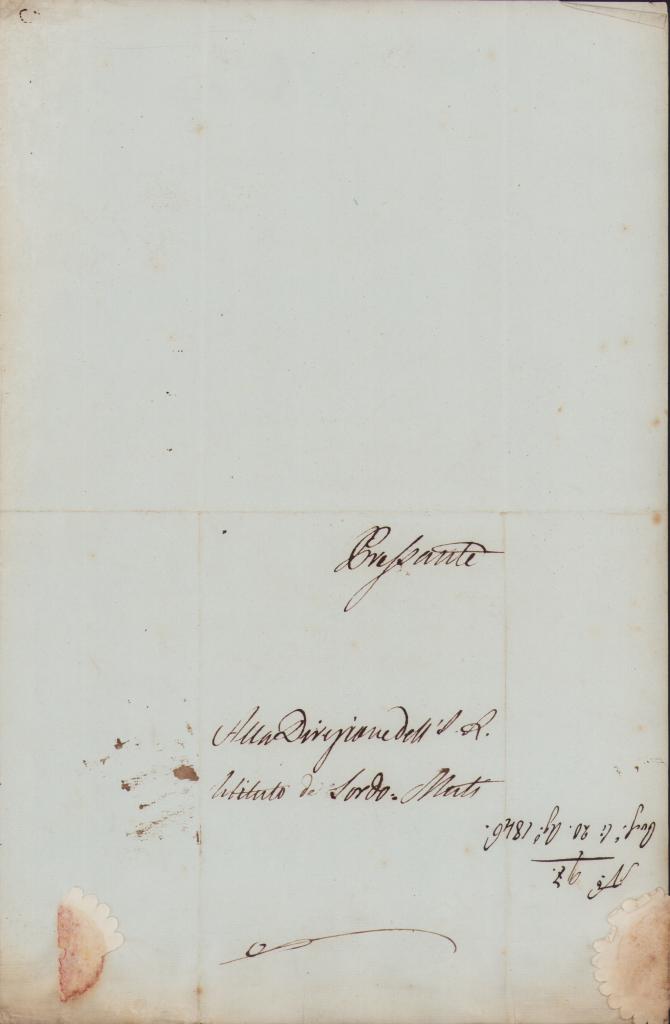 Pressante
Alla Direzione dell'I. R.
Istituto de Sordo=Muti
N.° 97.
li 20. Ag.° 1846.